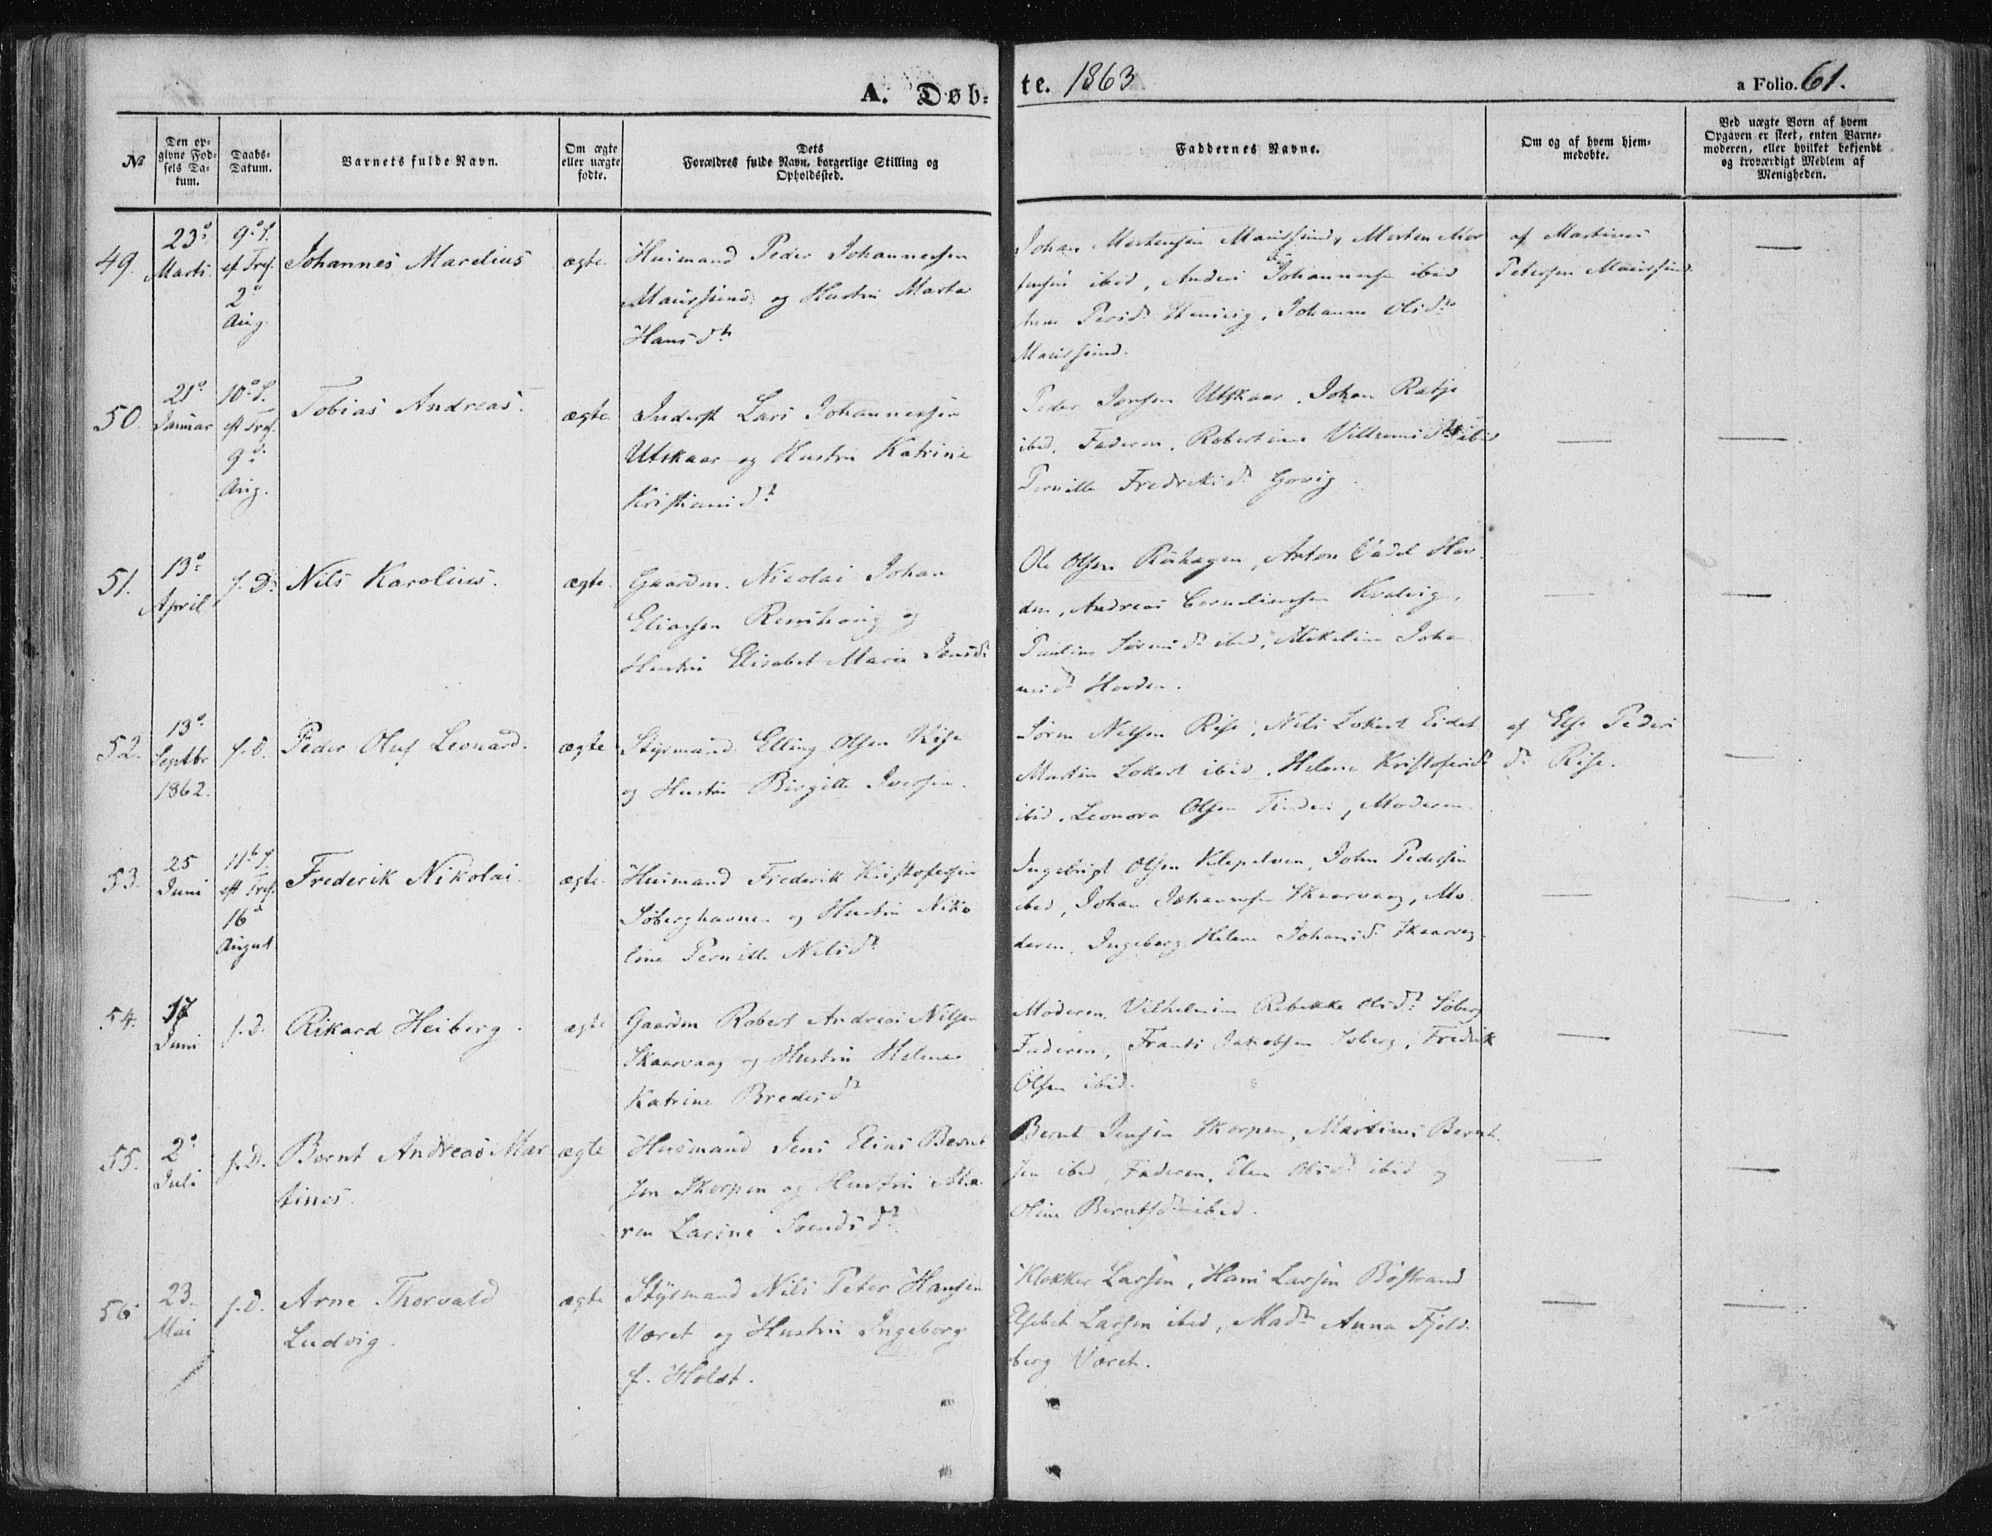 A. Døb-
te. 1863
a Folio. 61.
№
Den op-
givne Fød-
sels Da-
tum.
Daabs-
Datum.
Barnets fulde Navn.
Om ægte
eller uægte
fødte.
Dets
Forældres fulde Navn, borgerlige Stilling og
Opholdssted.
Faddernes Navne.
Om og af hvem hjem-
medøbte.
Ved uægte Børn af hvem
Opgaven er skeet, enten Barne-
moderen, eller hvilket bekjendt
og troværdigt Medlem af
Menigheden.
49.
23°
Marts
9° S.
ef Tref.
2°
Aug.
Johannes Marelius
ægte
Huusmand Peder Johannessen
Maursund og Hustru Marta
Hansdr
Johan Mortensen Maursund, Morten Mor
tensen ibid, Anders Johannessen ibid
Persdr Johanna Olsdr
Maursund.
af Martinus
Petersen Maursund
50.
21°
Januar
10° S.
eft Tref.
9d
Aug.
Tobias Andreas.
ægte
Inderst Lars Johannessen
Utskaar og Hustru Katrine
Kristiansdr
Peder Jonsen Utskaar, Johan Ratje
ibid, Faderen, Robertine Villumsdr ibid
Pernille Fredriksdr Govig.
51.
13°
April
s. D.
Nils Karolius.
ægte.
Gaardm. Nicolai Johan
Eliassen Remshaug og
Hustru Elisabet Marie Jensdr
Ole Olsen Røshagen, Anton Hov
den, Andreas Corneliussen Kvalvig,
Pauline Sørensdr ibid, Mikeline Johan
nesdr Hovden.
52.
13°
Septbr
1862.
s. D.
Peder Oluf Leonard.
ægte
Styrmand Elling Olsen Rise
og Hustru Birgitte Iversen.
Søren Nilsen Rise, Nils Lokert Eidet
Martin Lokert ibid, Helene Kristofersdr
ibid, Leonora Olsen, Moderen.
af Else Peders
dr Rise.
53.
25
Juni
11te S.
eft Tref.
16d
August
Frederik Nikolai.
ægte.
Huusmand Frederik Kristofersen
Søberghavne og Hustru Niko
line Pernille Nilsdr
Ingebrigt Olsen Klepelven, John Pedersen
ibid, Johan Johannessen Skaarvaag, Mo
deren, Ingeborg Helene Johansdr Skaarvag
54.
17
Juni
s. D.
Rikard Heiberg.
ægte
Gaardm Robert Andreas Nilsen
Skaarvaag og Hustru Helene
Katrine Bredesdr
Moderen, Vilhelmine Rebekke Olsdr Søberg
Faderen, Frants Jakobsen Soberg, Fredrik
Olsen ibid.
55.
2°
Juli
s. D.
Bernt Andreas Mar
tines.
ægte
Husmand Jens Elias Bernt
sen Skorpen og Hustru Ma
ren Larine Svendsdr
Bernt Jensen Skorpen, Martinus Bernt
sen ibid, Faderen, Elen Olsdr ibid og
Oline Berntsdr ibid.
56.
23.
Mai
s. D.
Arne Thorvald
Ludvig.
ægte
Styrmand Nils Peter Hansen
Været og Hustru Ingeborg
f. Holst.
Klokker Larsen, Hans Larsen Bøstrand
Elsebet Larsen ibid, Madm Anna Fjeld
berg Været.